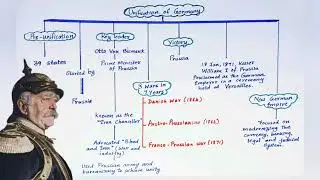 Unification of Germany
Pre-unification
Key leader
Victory
39 states
Otto Von Bismarck
Prussia
Started by
Prime Minister
of Prussia
18 Jan, 1871, Kaiser
William I of Prussia
Proclaimed as the German
Emperor in a ceremony
held at Versailles.
3 Wars in
7 Years
Prussia
Danish War (1864)
New German
Empire
known as the
"Iron Chancellor"
Austro-Prussian War (1866)
Focused on
modernizing the
currency, banking,
legal and judicial
System.
Advocated "Blood
and Iron" (war and
industry)
Franco-Prussian War (1871)
Used Prussian army and
bureaucracy to achieve unity